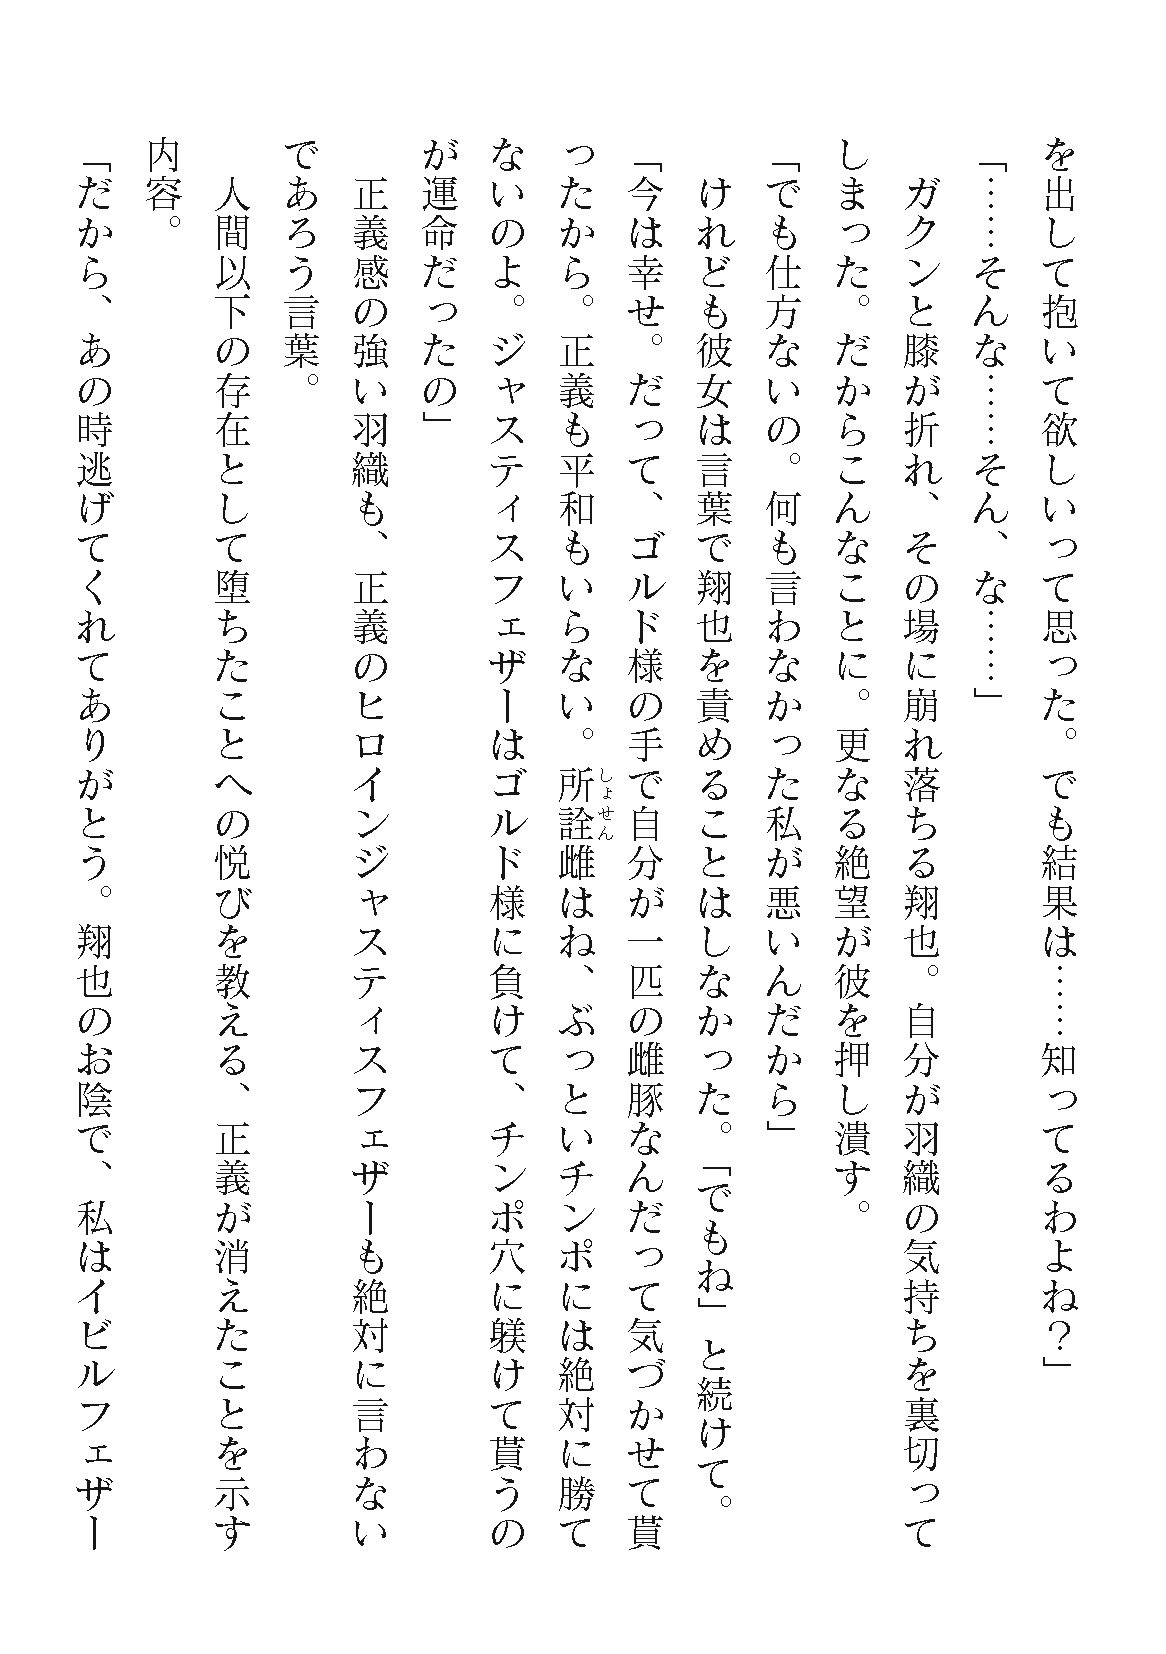 を出して抱いて欲しいって思った。でも結果は……知ってるわよね？」
「……そんな……そん、な……」
　ガクンと膝が折れ、その場に崩れ落ちる翔也。自分が羽織の気持ちを裏切って
しまった。だからこんなことに。更なる絶望が彼を押し潰す。
「でも仕方ないの。何も言わなかった私が悪いんだから」
　けれども彼女は言葉で翔也を責めることはしなかった。「でもね」と続けて。
「今は幸せ。だって、ゴルド様の手で自分が一匹の雌豚なんだって気づかせて貰
ったから。正義も平和もいらない。所詮雌はね、ぶっといチンポには絶対に勝て
しょせん
ないのよ。ジャスティスフェザーはゴルド様に負けて、チンポ穴に躾けて貰うの
が運命だったの」
　正義感の強い羽織も、正義のヒロインジャスティスフェザーも絶対に言わない
であろう言葉。
　人間以下の存在として堕ちたことへの悦びを教える、正義が消えたことを示す
内容。
「だから、あの時逃げてくれてありがとう。翔也のお陰で、私はイビルフェザー